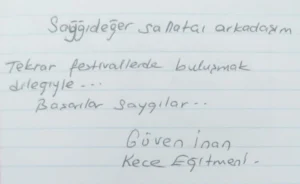 Saygıdeğer sanatçı arkadaşım
Tekrar festivallerde buluşmak
dileğiyle...
Başarılar saygılar..
Güven İnan
Keçe Eğitmeni.